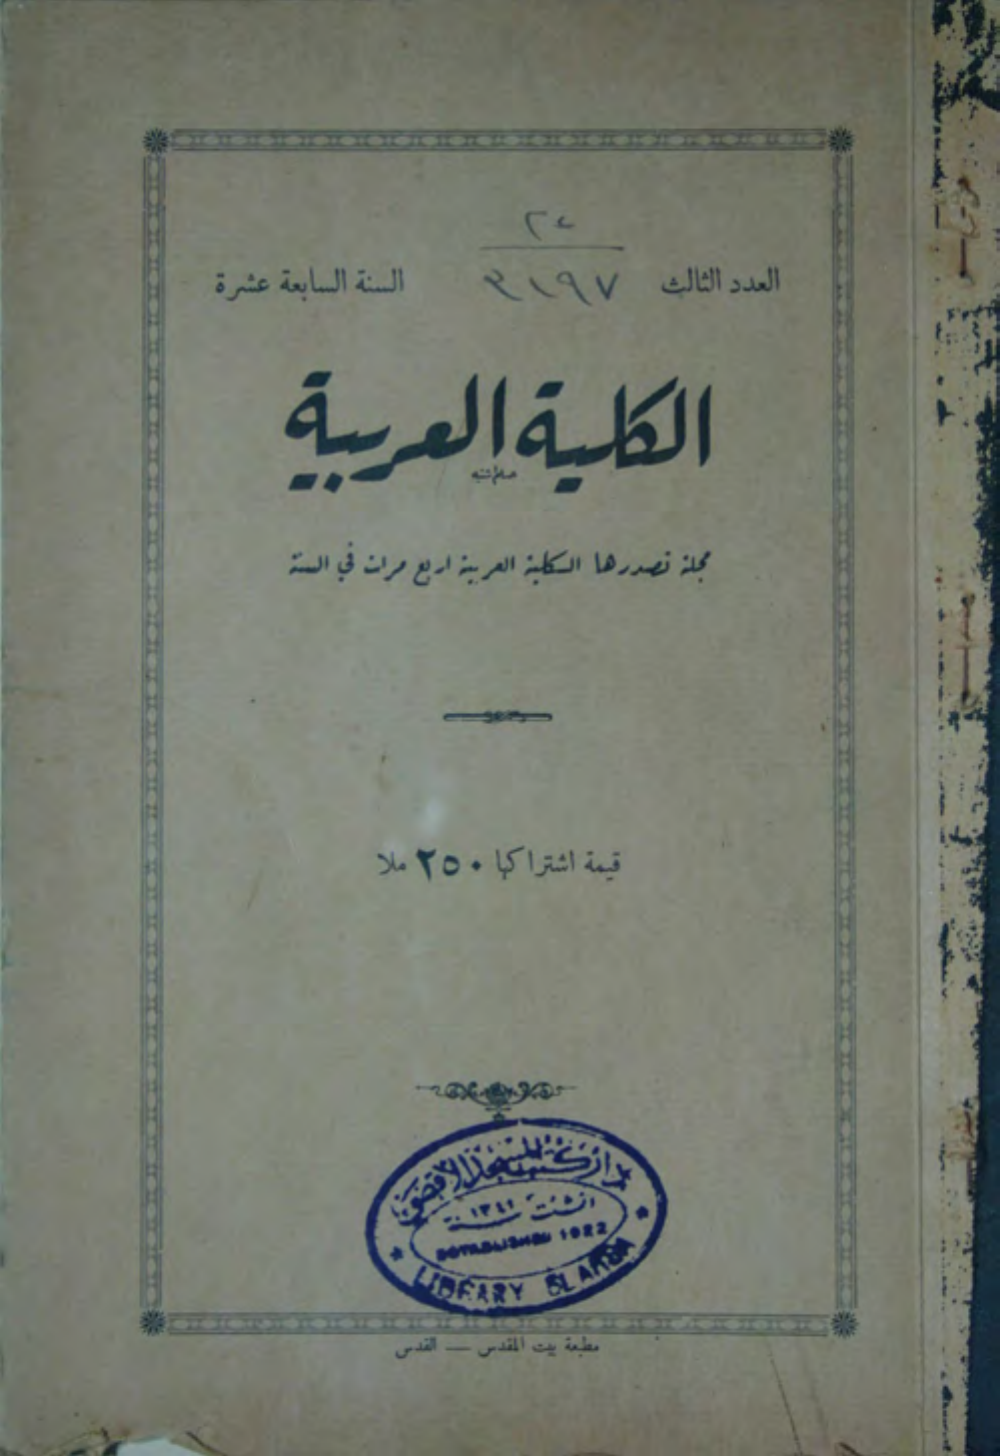 ٢٤
العدد الثالث ٣١٩٧ السنة السابعة عشرة
الكلية العربية
مجلة تصدرها الكلية العربية اربع مرات في السنة
قيمة اشتراكها ٢٥٠ ملا
دار كتب المسجد الأقصى
انشئت سنة ١٣٤١
ESTABLISHED 1922
LIBRARY EL AKSA
مطبعة بيت المقدس — القدس